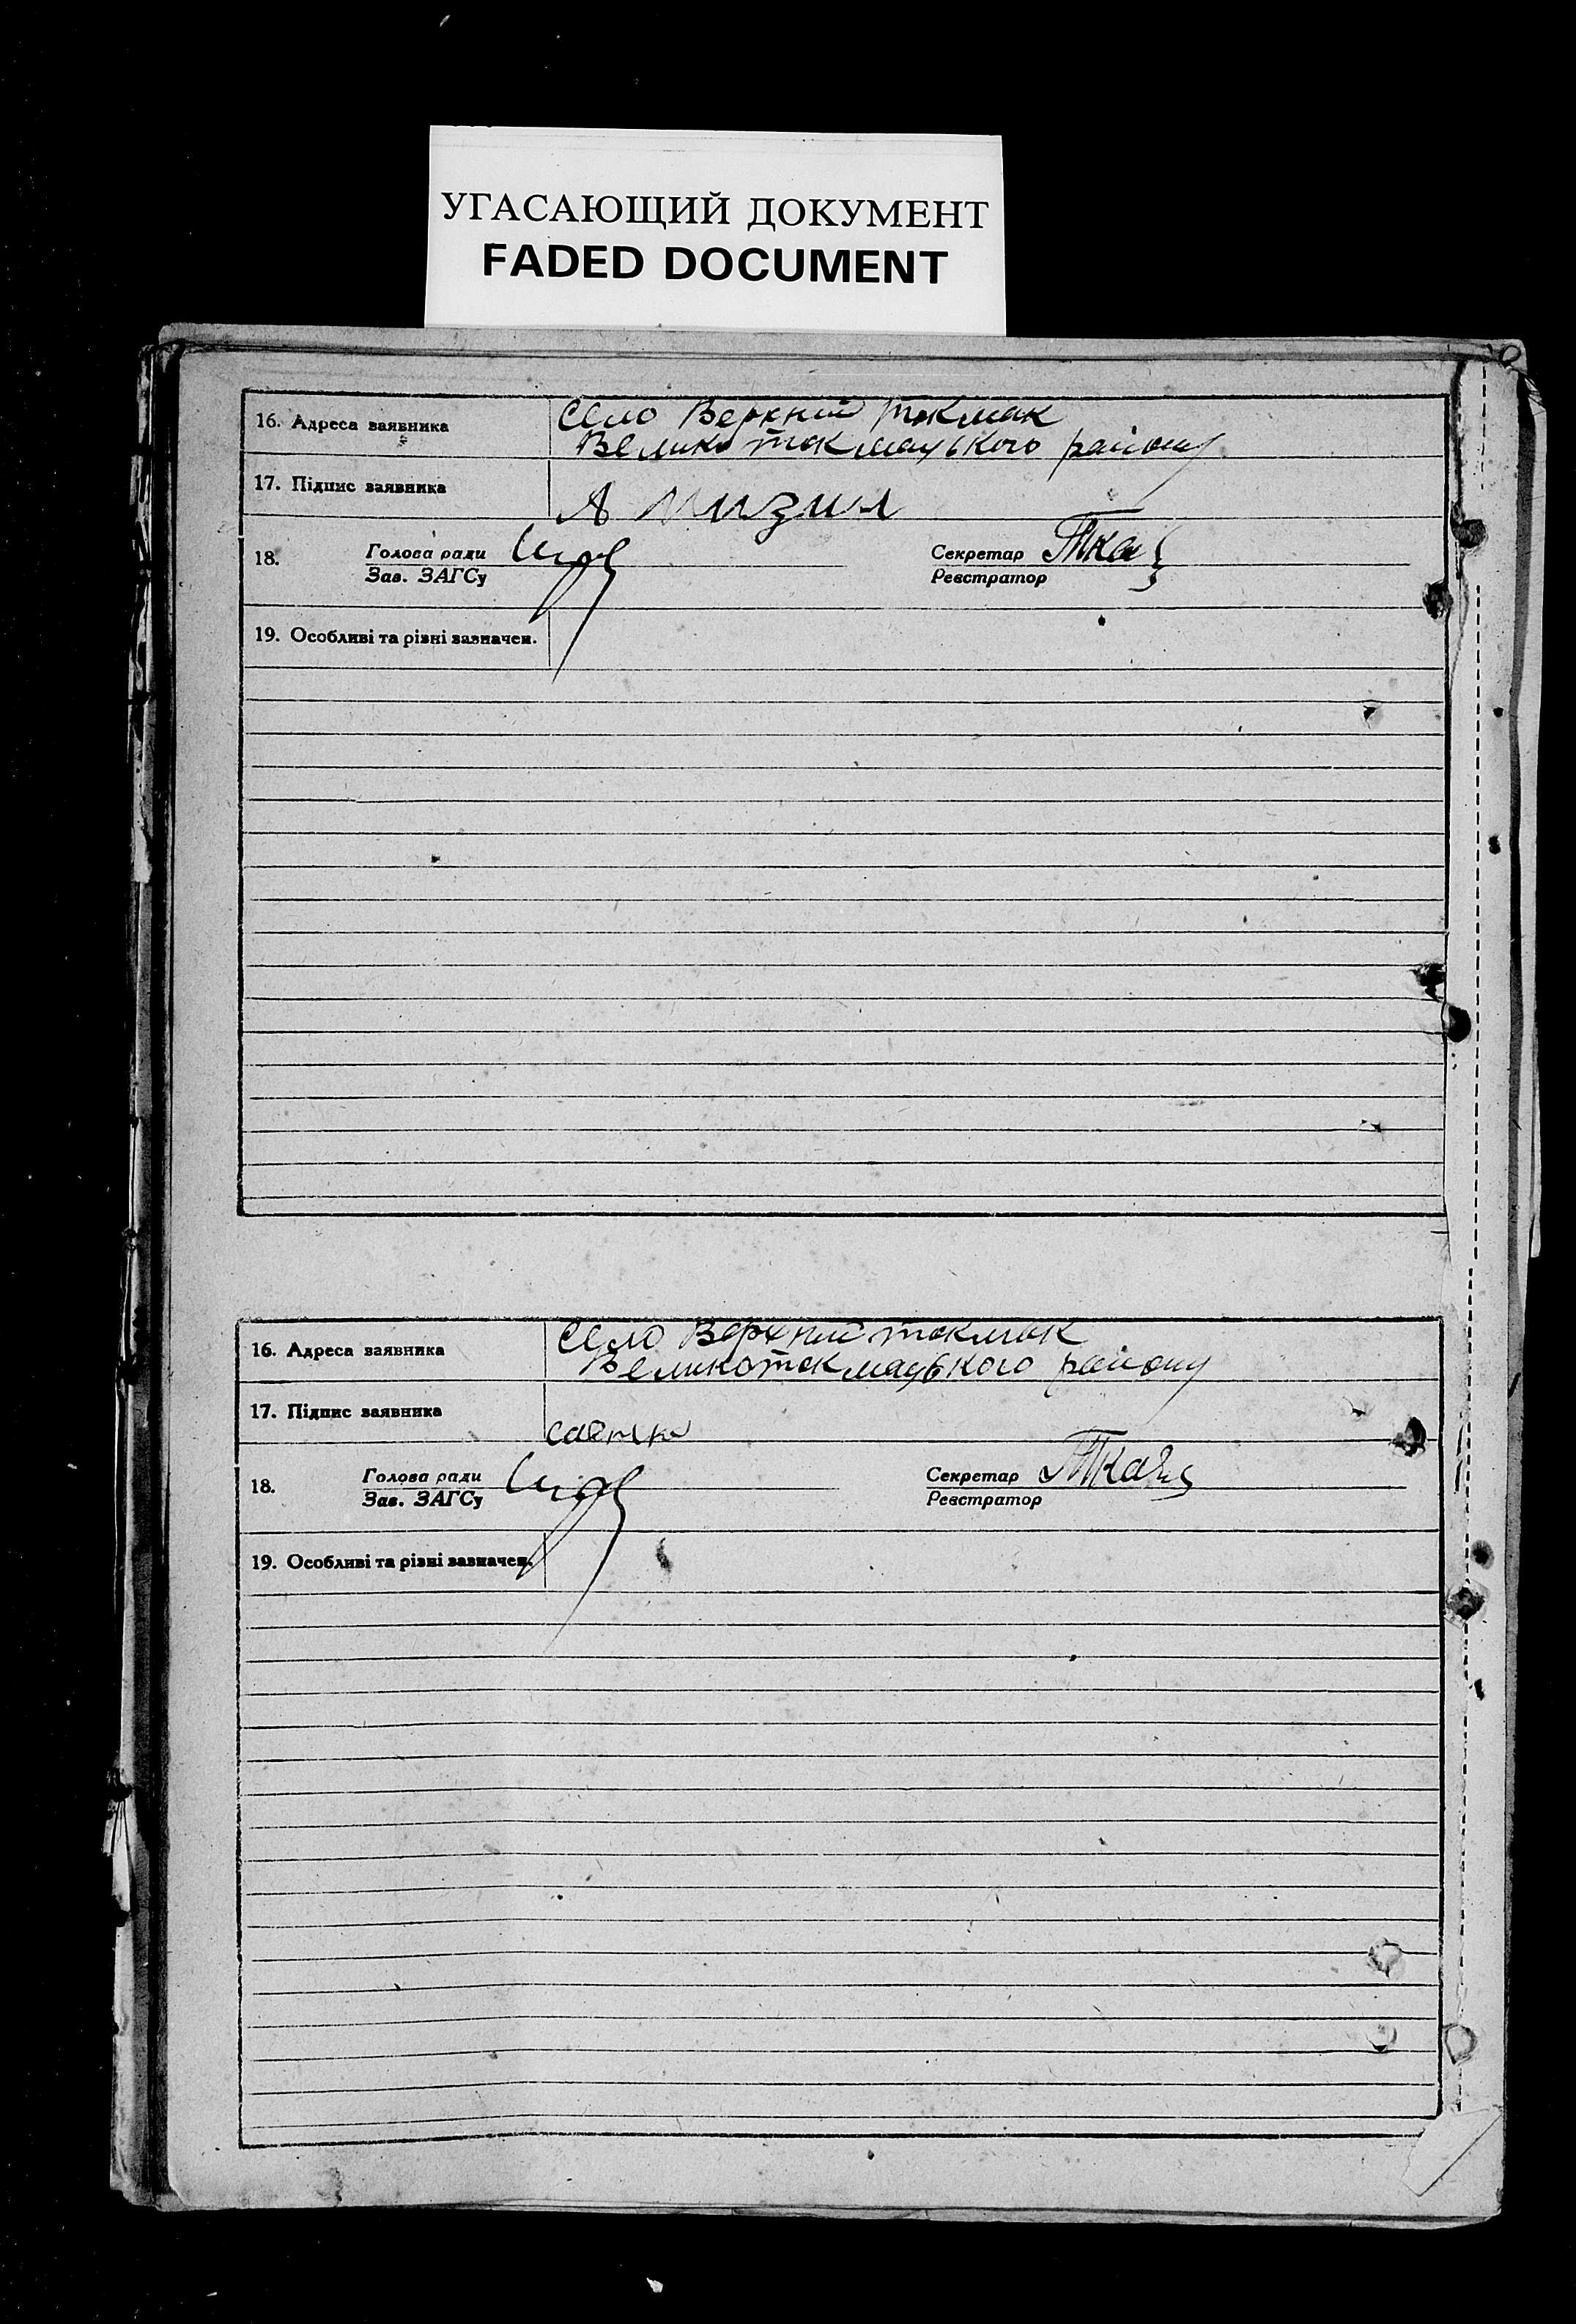 УГАСАЮЩИЙ ДОКУМЕНТ
FADED DOCUMENT
16. Адреса заявника Село Верхній токмак
Великотокмацького району
17. Підпис заявника А Мизин
18. Голова ради Секретар Ткач
Зав. ЗАГСу Реєстратор
19. Особливі та різні зазначен.
16. Адреса заявника Село Верхний токмак
Великотокмацького району
17. Підпис заявника
18. Голова ради Секретар Ткач
Зав. ЗАГСу Реєстратор
19. Особливі та різні зазначен.